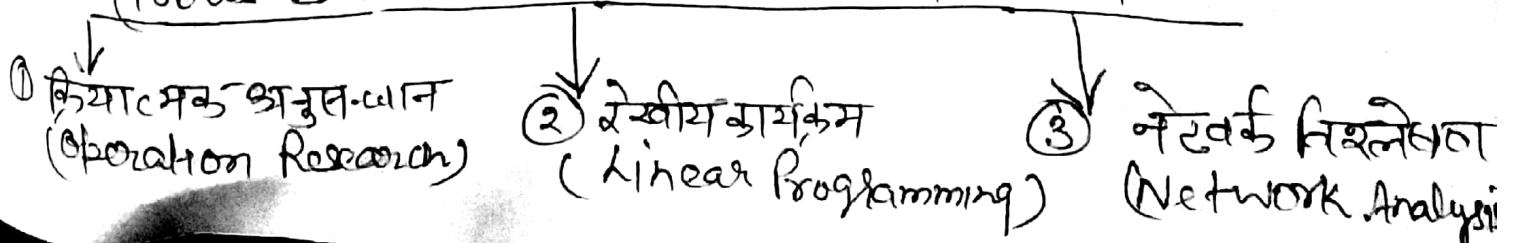 ① क्रियात्मक अनुसन्धान
(Operation Research)
② रेखीय कार्यक्रम
(Linear Programming)
③ नेटवर्क विश्लेषण
(Network Analysis